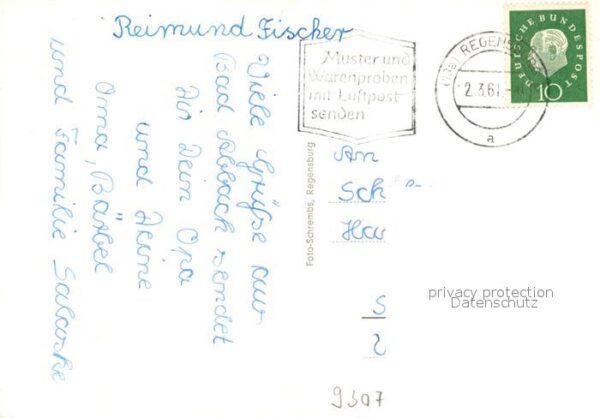 Reimund Fischer
Viele Grüße aus
Bad Abbach sendet
Dir Dein Opa
und Deine
Oma, Bärbel
und Familie
Muster und
Warenproben
mit Luftpost
senden
REGENS
2.3.61
a
DEUTSCHE BUNDESPOST
10
Foto-Schrembs, Regensburg
An
Sch
Hav
S
privacy protection
Datenschutz
9307